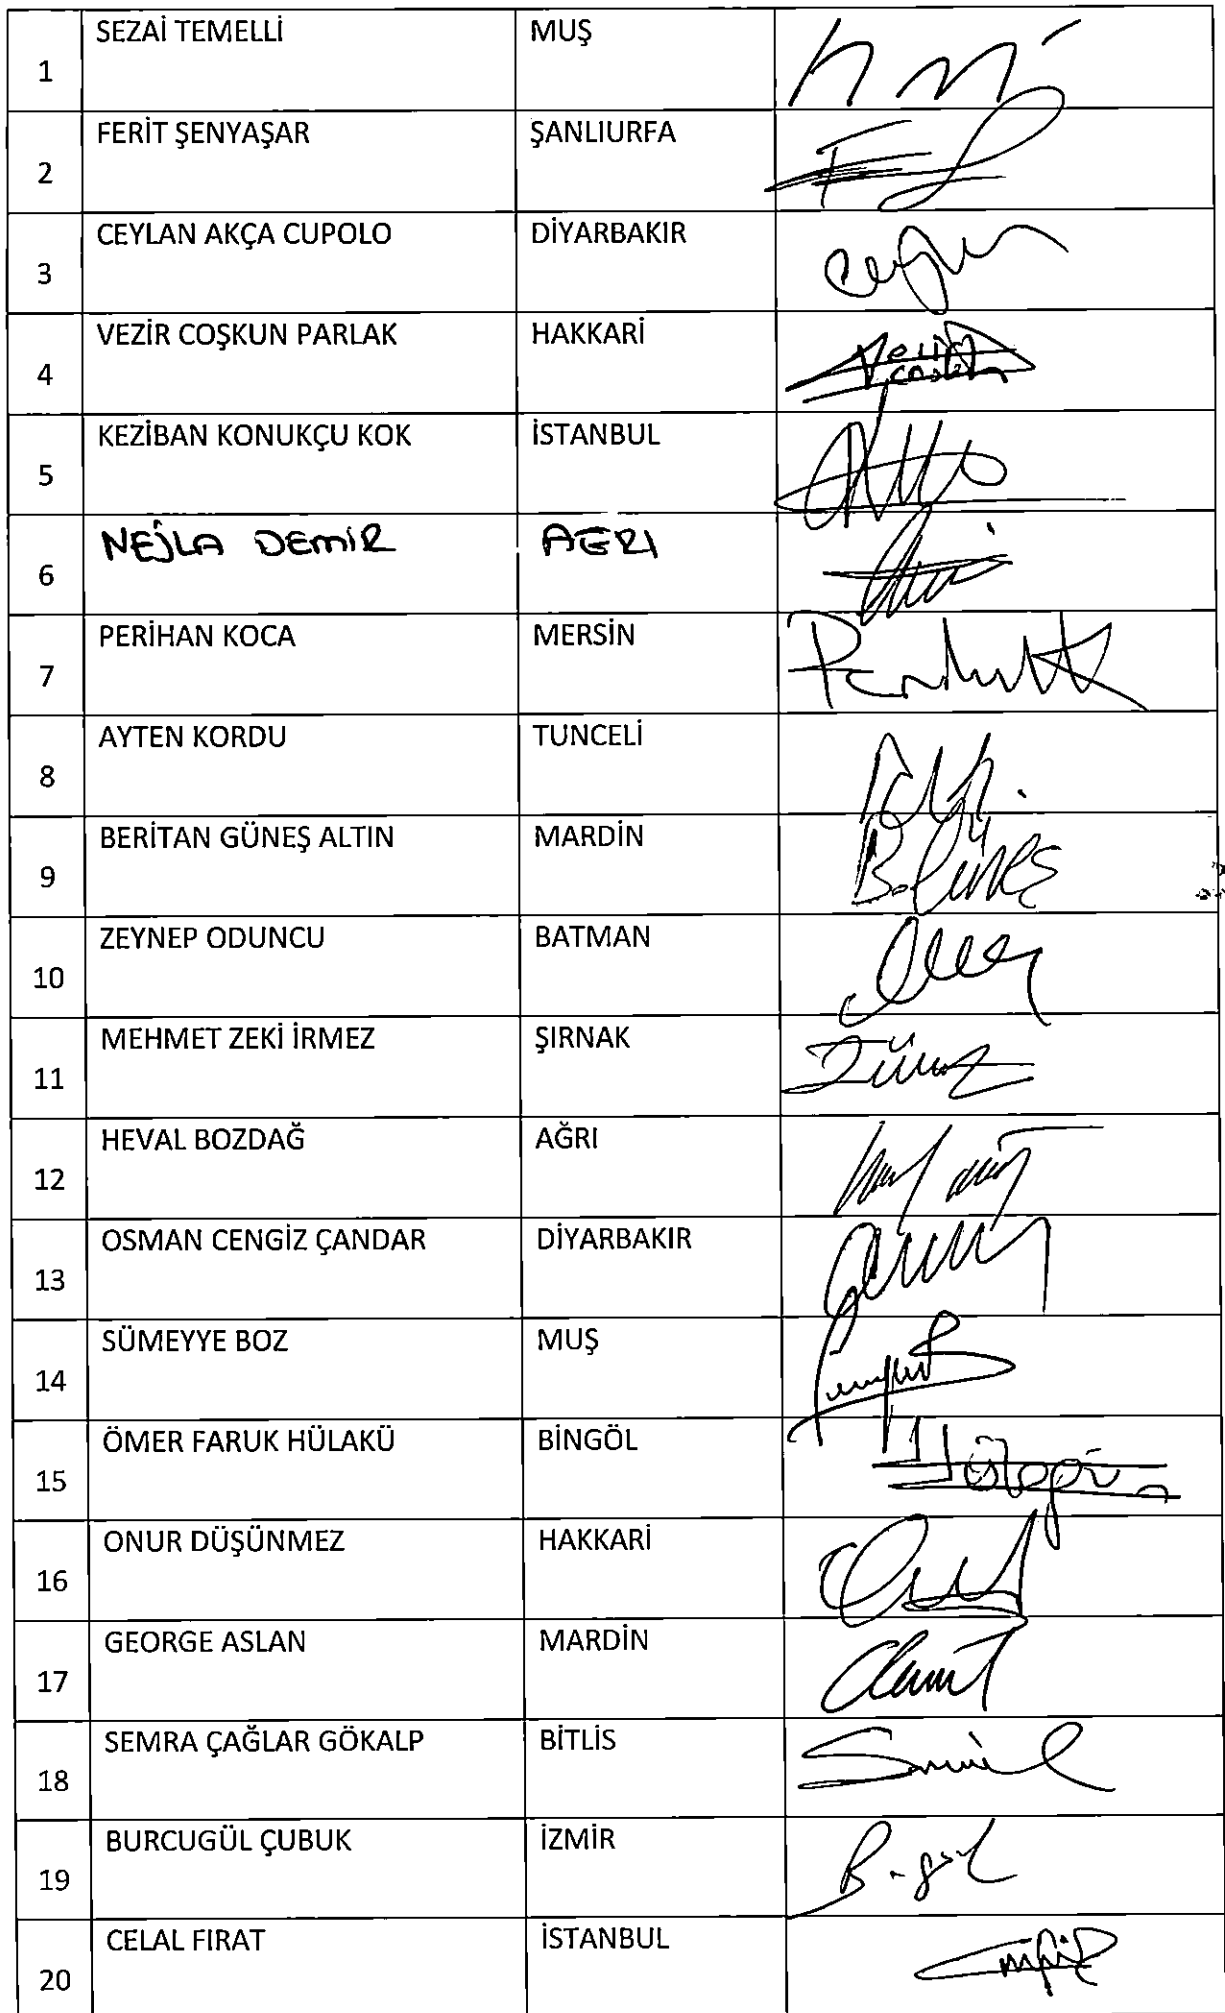 SEZAİ TEMELLİ MUŞ
1
FERİT ŞENYAŞAR ŞANLIURFA
2
CEYLAN AKÇA CUPOLO DİYARBAKIR
3
VEZİR COŞKUN PARLAK HAKKARİ
4
KEZİBAN KONUKÇU KOK İSTANBUL
5
NEJLA DEMİR AĞRI
6
PERİHAN KOCA MERSİN
7
AYTEN KORDU TUNCELİ
8
BERİTAN GÜNEŞ ALTIN MARDİN
9 B. Güneş
ZEYNEP ODUNCU BATMAN
10
MEHMET ZEKİ İRMEZ ŞIRNAK
11
HEVAL BOZDAĞ AĞRI
12
OSMAN CENGİZ ÇANDAR DİYARBAKIR
13
SÜMEYYE BOZ MUŞ
14
ÖMER FARUK HÜLAKÜ BİNGÖL
15
ONUR DÜŞÜNMEZ HAKKARİ
16
GEORGE ASLAN MARDİN
17
SEMRA ÇAĞLAR GÖKALP BİTLİS
18
BURCUGÜL ÇUBUK İZMİR
19
CELAL FIRAT İSTANBUL
20